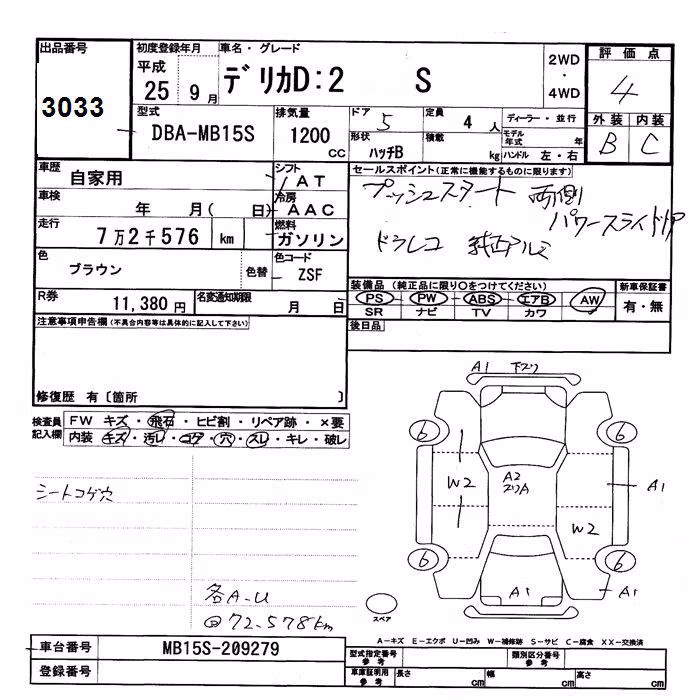 出品番号
3033
初度登録年月
平成
25 9月
車名・グレード
デリカD:2 S
2WD
・
4WD
評価点
4
外装 内装
B C
型式
DBA-MB15S
排気量
1200
CC
ドア
5
定員
4人
ディーラー・並行
形状
ハッチB
積載
kg
モデル年式 年
ハンドル 左・右
車歴
自家用
シフト
AT
車検
年 月( 日)
冷房
AAC
走行
7万2千576 km
燃料
ガソリン
色
ブラウン
色替
色コード
ZSF
R券
11,380円
名変通知期限
月 日
セールスポイント(正常に機能するものに限ります)
プッシュスタート 両側
パワースライドドア
ドラレコ 純正アルミ
装備品 (純正品に限り○をつけてください)
PS PW ABS エアB AW
SR ナビ TV カワ
新車保証書
有・無
後日品
注意事項申告欄(不具合内容等は具体的に記入して下さい)
修復歴 有〔箇所 〕
検査員
記入欄
FW キズ・飛石・ヒビ割・リペア跡・×要
内装 キズ・汚レ・コゲ・穴・スレ・キレ・破レ
シートコゲ穴
各A-U
@72-578km
A1 下スリ
6 6
W2
A2
A1
W2
6 6
A1
A1
スペア
A-キズ E-エクボ U-凹み W-補修跡 S-サビ C-腐食 XX-交換済
車台番号
MB15S-209279
登録番号
型式指定番号
参考
類別区分番号
参考
車庫証明用
参考
長さ cm
幅 cm
高さ cm